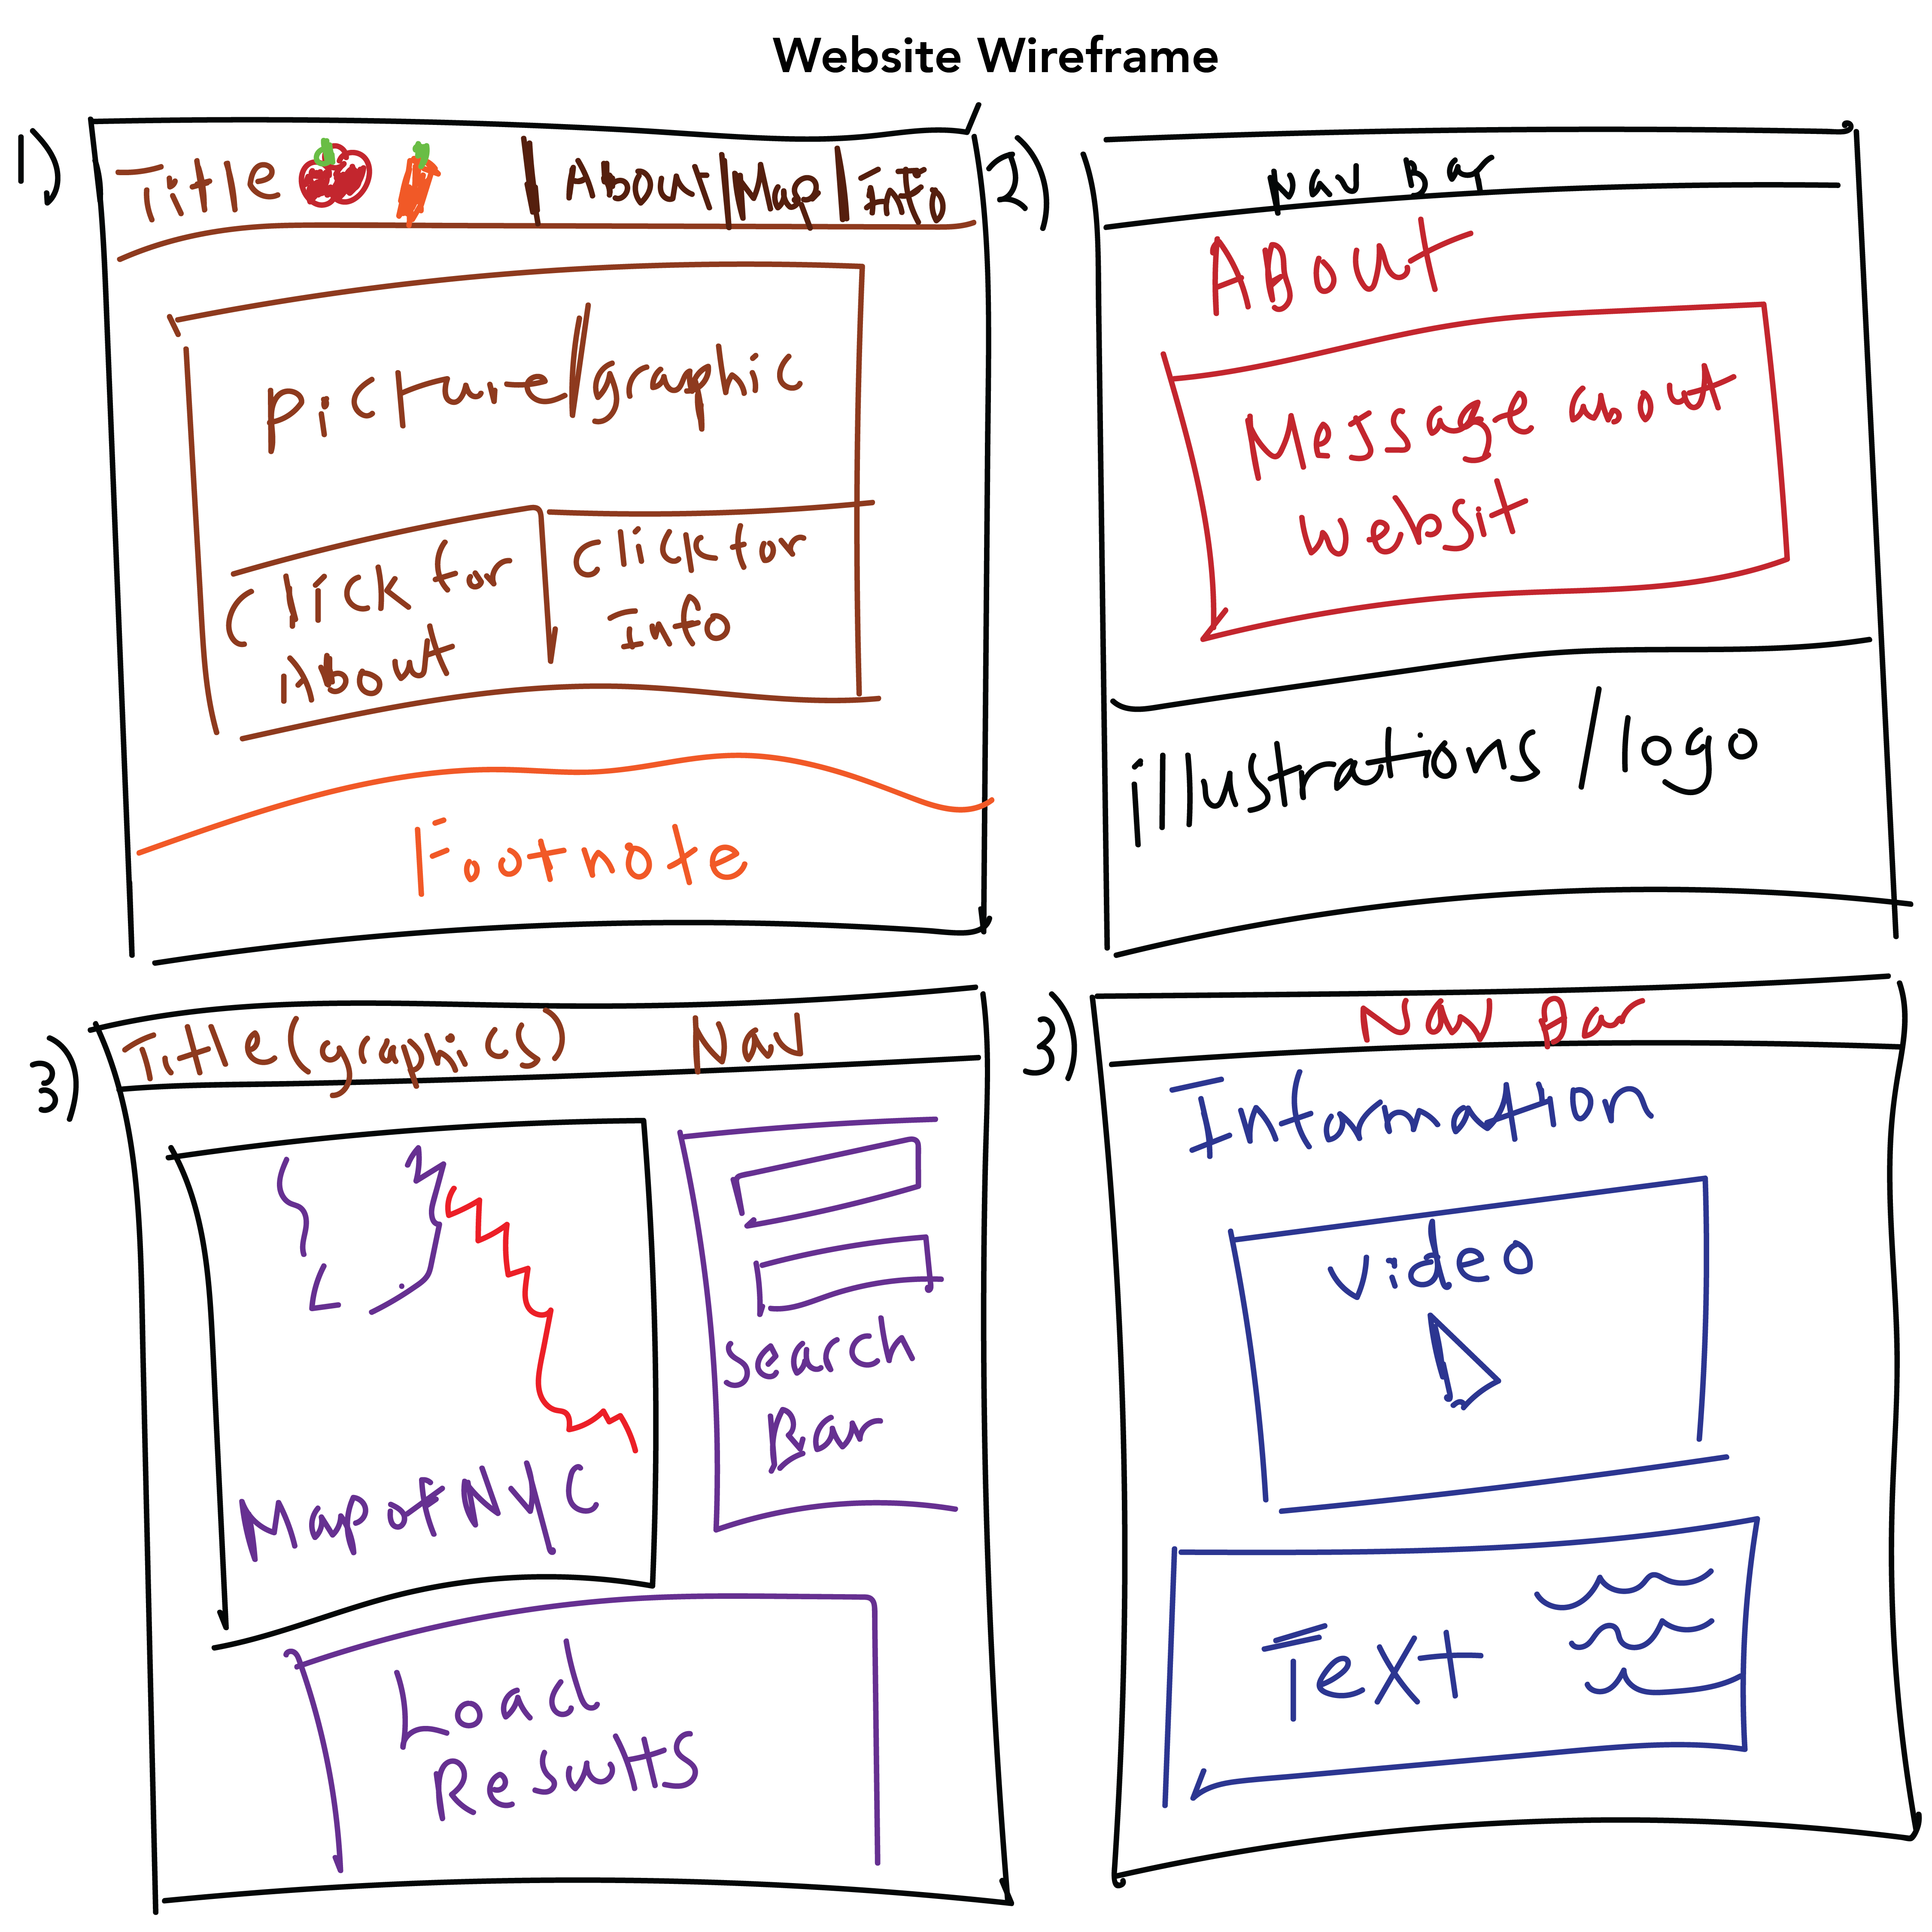 Website Wireframe
1)
Title | About/Map|Info
picture/graphic
Click for
About
Click for
Info
Footnote
2)
Nav Bar
About
Message about
Websit
illustrations/logo
3)
Title(graphics) Nav
Map of NYC
Search
Bar
Load
Results
3)
Nav Bar
Information
Video
Text